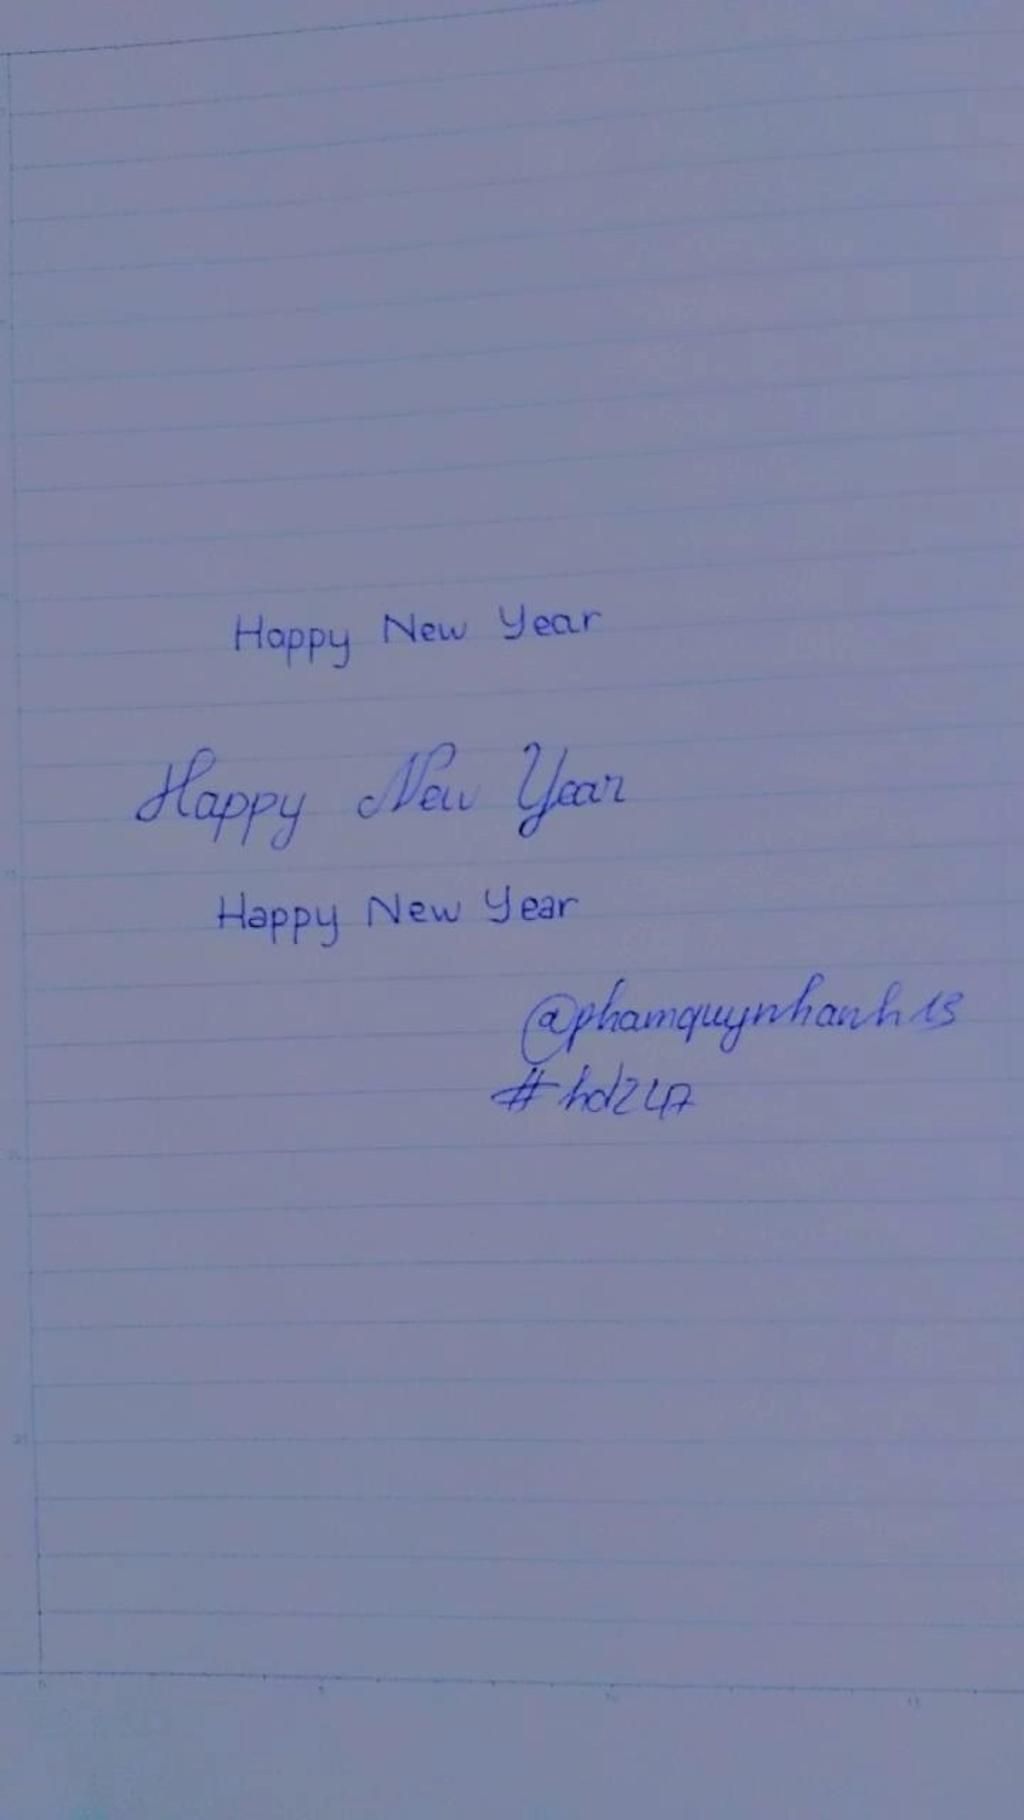 Happy New Year
Happy New Year
Happy New Year
@phamquynhanh13
#hd247